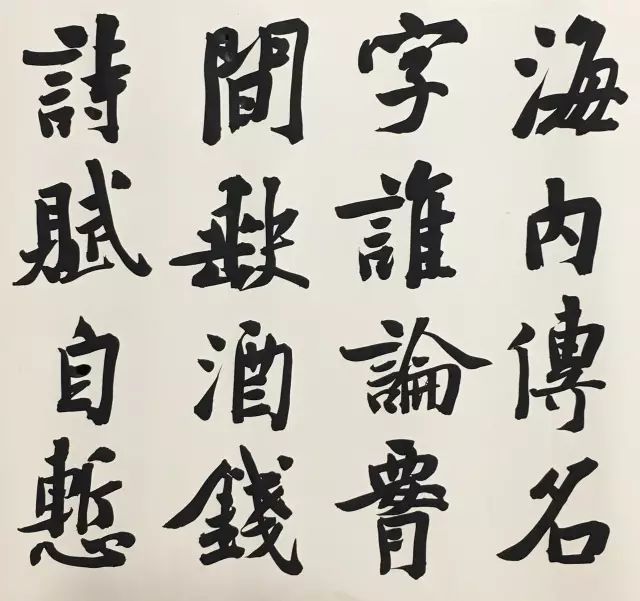 海内傳名
字誰論
間酒錢
詩賦自慙